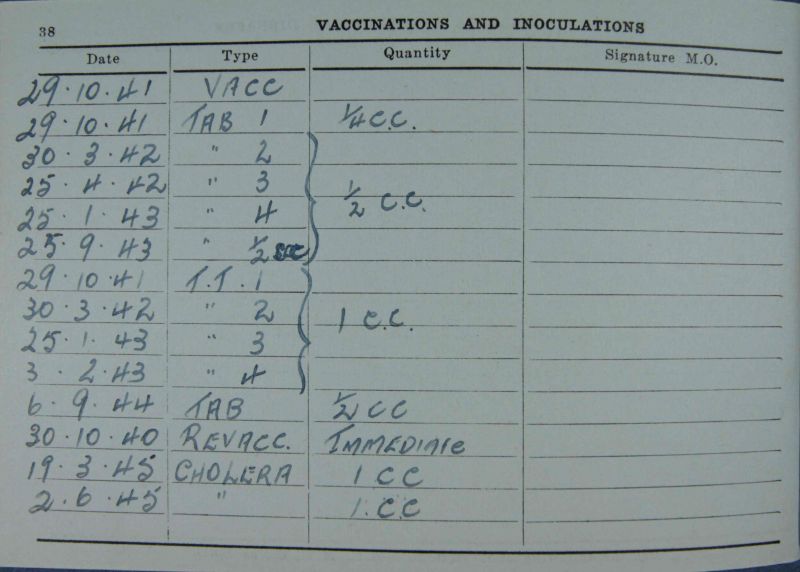 38 VACCINATIONS AND INOCULATIONS
Date Type Quantity Signature M.O.
29.10.41 VACC
29.10.41 TAB 1 1/4 C.C.
30.3.42 " 2
25.4.42 " 3
25.1.43 " 4 1/2 C.C.
25.9.43 " 1/2
29.10.41 T.T. 1
30.3.42 " 2 1 C.C.
25.1.43 " 3
3.2.43 " 4
6.9.44 TAB 1/2 CC
30.10.40 REVACC. IMMEDIATE
19.3.45 CHOLERA 1 CC
2.6.45 " 1.CC